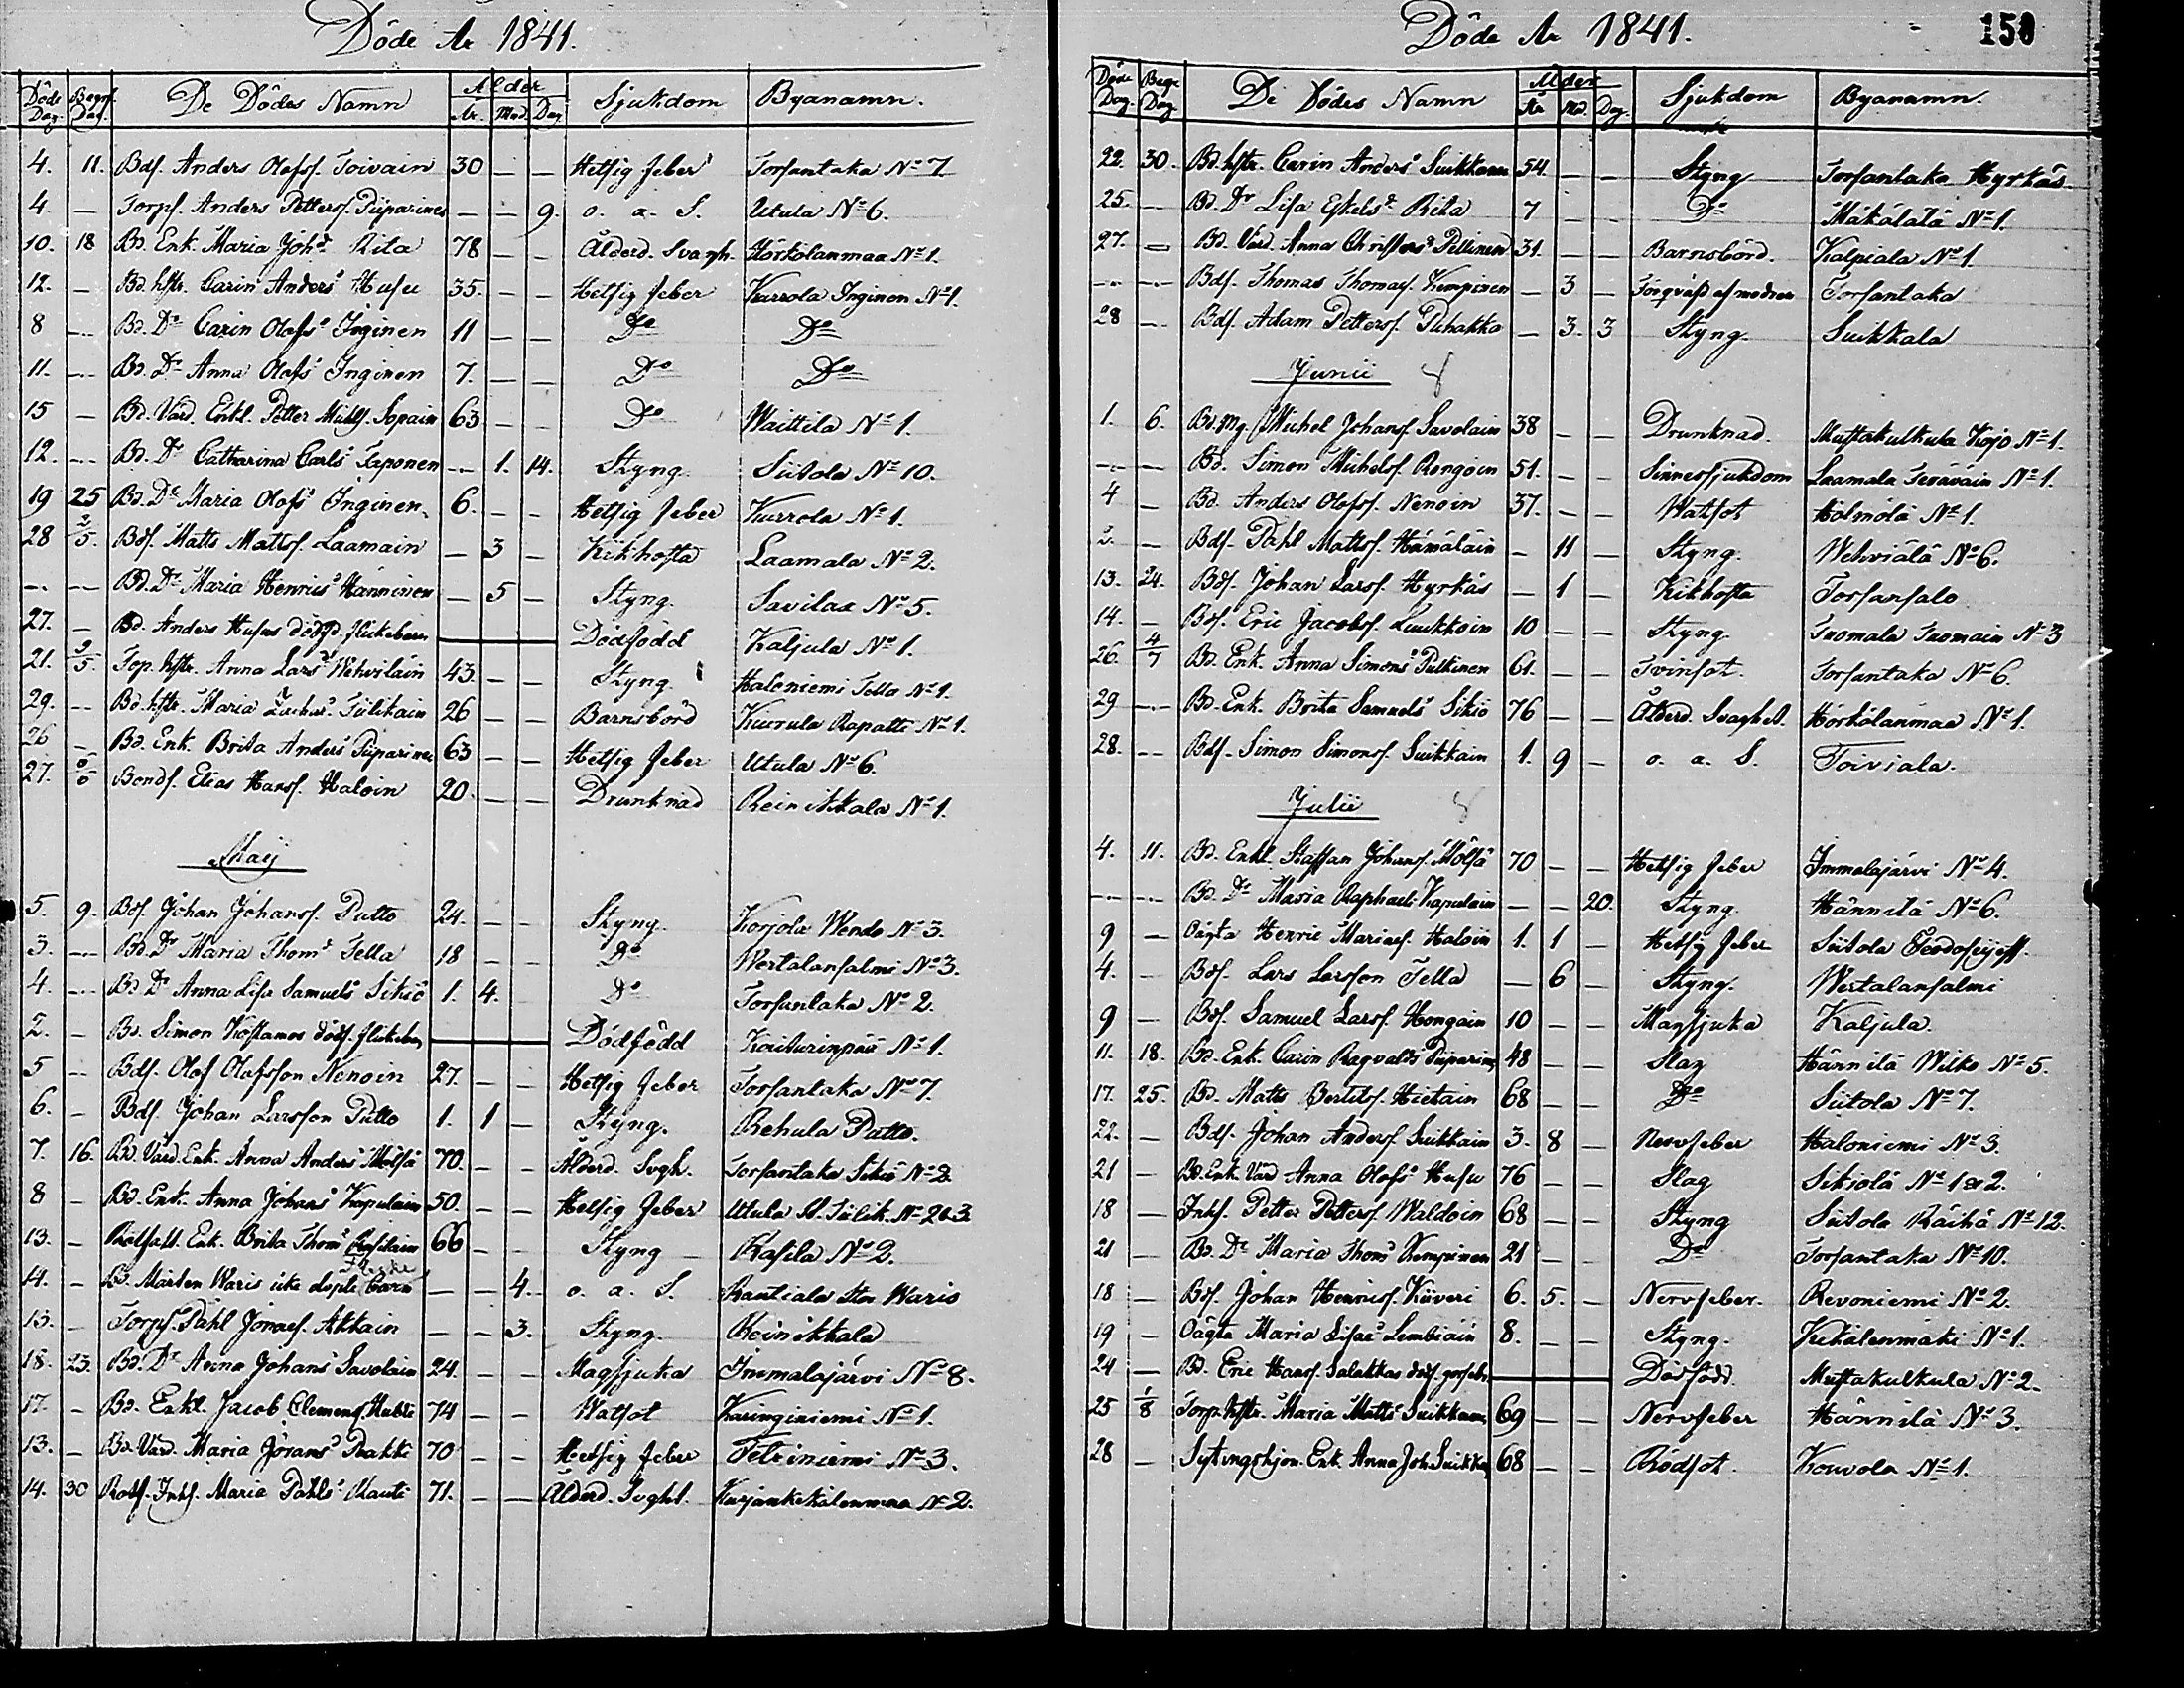 Döde År 1841.
Döde Dag. Begr. Dag. De Dödas Namn Ålder År. Mnd. Dag Sjukdom Byanamn.
4. 11. Bdſ. Anders Olofſ. Toivain 30 — — Hetſig feber Torſantaka No 7
4. — Torpſ. Anders Petterſ. Piiparinen — — 9. o. a. S. Utula No 6.
10. 18 Bd. Enk. Maria Johsd. Rita 78 — — Ålderd. Svagh. Hörkölänmaa No 1.
12. — Bd. hſtr. Carin Andersd. Hufu 35. — — Hetſig feber Kurrola Inginen No 1.
8 — Bd. Dr Carin Olofsd. Inginen 11 — — Do Do
11. — Bd. Dr Anna Olofsd. Inginen 7. — — Do Do
15 — Bd. Värd. Enkl. Petter Michlſ. Sopain 63 — — Do Waittila No 1.
12. — Bd. Dr Catharina Carlsd. Taponen — 1. 14. Styng. Siitola No 10.
19 25 Bd. Dr Maria Olofsd. Inginen 6. — — Hetſig feber Kurrola No 1.
28 2/5. Bdſ. Matts Mattsſ. Laamain — 3 — Kikhoſta Laamala No 2.
— — Bd. Dr Maria Henricsd. Hänninen — 5 — Styng. Savilax No 5.
27. — Bd. Anders Hufus dödfd. flickebarn Dödfödd Kaljula No 1.
21. 2/5. Top. hſtr. Anna Larsd. Wehviläin 43. — — Styng. Haloniemi Tella No 1.
29. — Bd. hſtr. Maria Zachsd. Tiilikain 26 — — Barnsbörd Kurrula Rapatti No 1.
26 — Bd. Enk. Brita Andersd. Piiparinen 63 — — Hetſig feber Utula No 6.
27. Bondſ. Elias Hansſ. Haloin 20. — — Drunknad Reinikkala No 1.
Maij
5. 9. Bdſ. Johan Johansſ. Putto 24. — — Styng. Korjola Wendo No 3.
3. — Bd. Dr Maria Thomsd. Tella 18 — — Do Wertalanſalmi No 3.
4. — Bd Dr Anna Liſa Samuelsd. Sikiö 1. 4. Do Torſantaka No 2.
2. — Bd. Simon dödf. flickebn Dödfödd No 1.
5 — Bdſ. Olof Olofsſon Nenoin 27. — — Hetſig feber Torſantaka No 7.
6. — Bdſ. Johan Larsſon Putto 1. 1 — Styng. Rehula Putto.
7. 16. Bd. Värd. Enk. Anna Andersd. Mölſä 70. — — Ålderd. Svgh. Torſantaka Sikiö No 2.
8 — Bd. Enk. Anna Johansd. Kapulain 50. — — Hetſig feber Utula Tiilik. No 2 & 3
13. — Enk. Brita Thomsd. Raſilain 66 — — Styng Raſila No 2.
14. — Bd. Mårten Waris icke döpte Flicke barn — — 4. o. a. S. Rautiala Waris
13. — Torpſ. Påhl Jonaeſ. Akkain — — 3. Styng. Reinikkala
18. 23. Bd. Dr Anna Johansd. Savolain 24. — — Magſjuka Immalajärvi No 8.
17. — Bd. Enkl. Jacob Clemensſ. 74 — — Watſot Karinginiemi No 1.
13. — Bd. Värd. Maria Jöransd. Pukki 70 — — Hetſig feber No 3.
14. 30 Inhſ. Maria Påhlsd. Rauti 71. — — Ålderd. Svght. No 2.
Döde År 1841. 150
Döde Dag. Begr Dag De Dödes Namn Ålder År Md. Dag. Sjukdom Byanamn.
22. 30. Bd. hſtr. Carin Andersd. Suikkanen 54. — — Styng Torſantaka Hyrkäs
25. — Bd. Dr Liſa Eſkelsd. Rita 7 — — Do Mäkälätä No 1.
27. — Bd. Värd. Anna Chriſtersd. Pellinen 31. — — Barnsbörd. Kalpiala No 1
— — Bdſ. Thomas Thomaeſ. Kumpinen — 3 — af modren Torſantaka
28 — Bdſ. Adam Petterſ. Puhakka — 3. 3 Styng. Suikkala
Junii
1. 6. Bd. Mg. Michel Johansſ. Savolain 38 — — Drunknad. Muſtakulkula Kojo No 1.
— — Bd. Simon Michelsſ. Rongoin 51. — — Sinnesſjukdom Laamala Teräväin No 1.
4 — Bd. Anders Olofsſ. Nenoin 37. — — Watſot Hölmölä No 1.
2. — Bdſ. Påhl Mattsſ. Hämäläin — 11 — Styng. Wehviälä No 6.
13. 24. Bdſ. Johan Larsſ. Hyrkäs — 1 — Kikhoſta Torſanſalo
14. — Bdſ. Eric Jacobsſ. Luukkoin 10 — — Styng. Tuomala Tuomain No 3
26. 4/7 Bd. Enk. Anna Simonsd. Pulkinen 61. — — Tvinſot. Torſantaka No 6.
29 — Bd. Enk. Brita Samuelsd. Sikiö 76 — — Ålderd. Svaghet. Hörkölänmaa No 1.
28. — Bdſ. Simon Simonsſ. Suikkain 1. 9 — o. a. S. Toiviala.
Julii
4. 11. Bd. Enkl. Staffan Johansſ. Mölſä 70 — — Hetſig feber Immalajärvi No 4.
— — Bd. Dr Maria Raphaelsd. Kapulain — — 20. Styng. Hännilä No 6.
9 — Oägta Henric Mariaeſ. Haloin 1. 1 — Hetſig feber Siitola
4. — Bdſ. Lars Larsſon Tella — 6 — Styng. Wertalanſalmi
9 — Bdſ. Samuel Larsſ. Hongain 10 — — Magſjuka Kaljula.
11. 18. Bd. Enk. Carin Ragvaldsd. Piiparinen 48 — — Slag Hännilä Wilko No 5.
17. 25. Bd. Matts Bertilsſ. Hietain 68 — — Do Siitola No 7.
22. — Bdſ. Johan Andersſ. Suikkain 3. 8 — Nervfeber Haloniemi No 3.
21 — Bd. Enk. Värd Anna Olofsd. Hufu 76 — — Slag Sikiölä No 1 & 2.
18 — Inhſ. Petter Pettersſ. Waldoin 68 — — Styng Siitola Räihä No 12.
21 — Bd. Dr Maria Thomsd. Kempinen 21 — — Do Torſantaka No 10.
18 — Bdſ. Johan Henricsſ. Kiiveri 6. 5. — Nervfeber. Revoniemi No 2.
19 — Oägta Maria Liſaesd. Lembiäin 8. — — Styng. Kekälenmäki No 1.
24 — Bd. Eric Hansſ. Salakkas dödf. goſseb. Dödfödd. Muſtakulkula No 2.
25 1/8 Torp. hſtr. Maria Mattsd. Suikkanen 69 — — Nervfeber Hännilä No 3.
28 — Sytingshjon. Enk. Anna Joh. Suikka 68 — — Rödſot. Kouvola No 1.